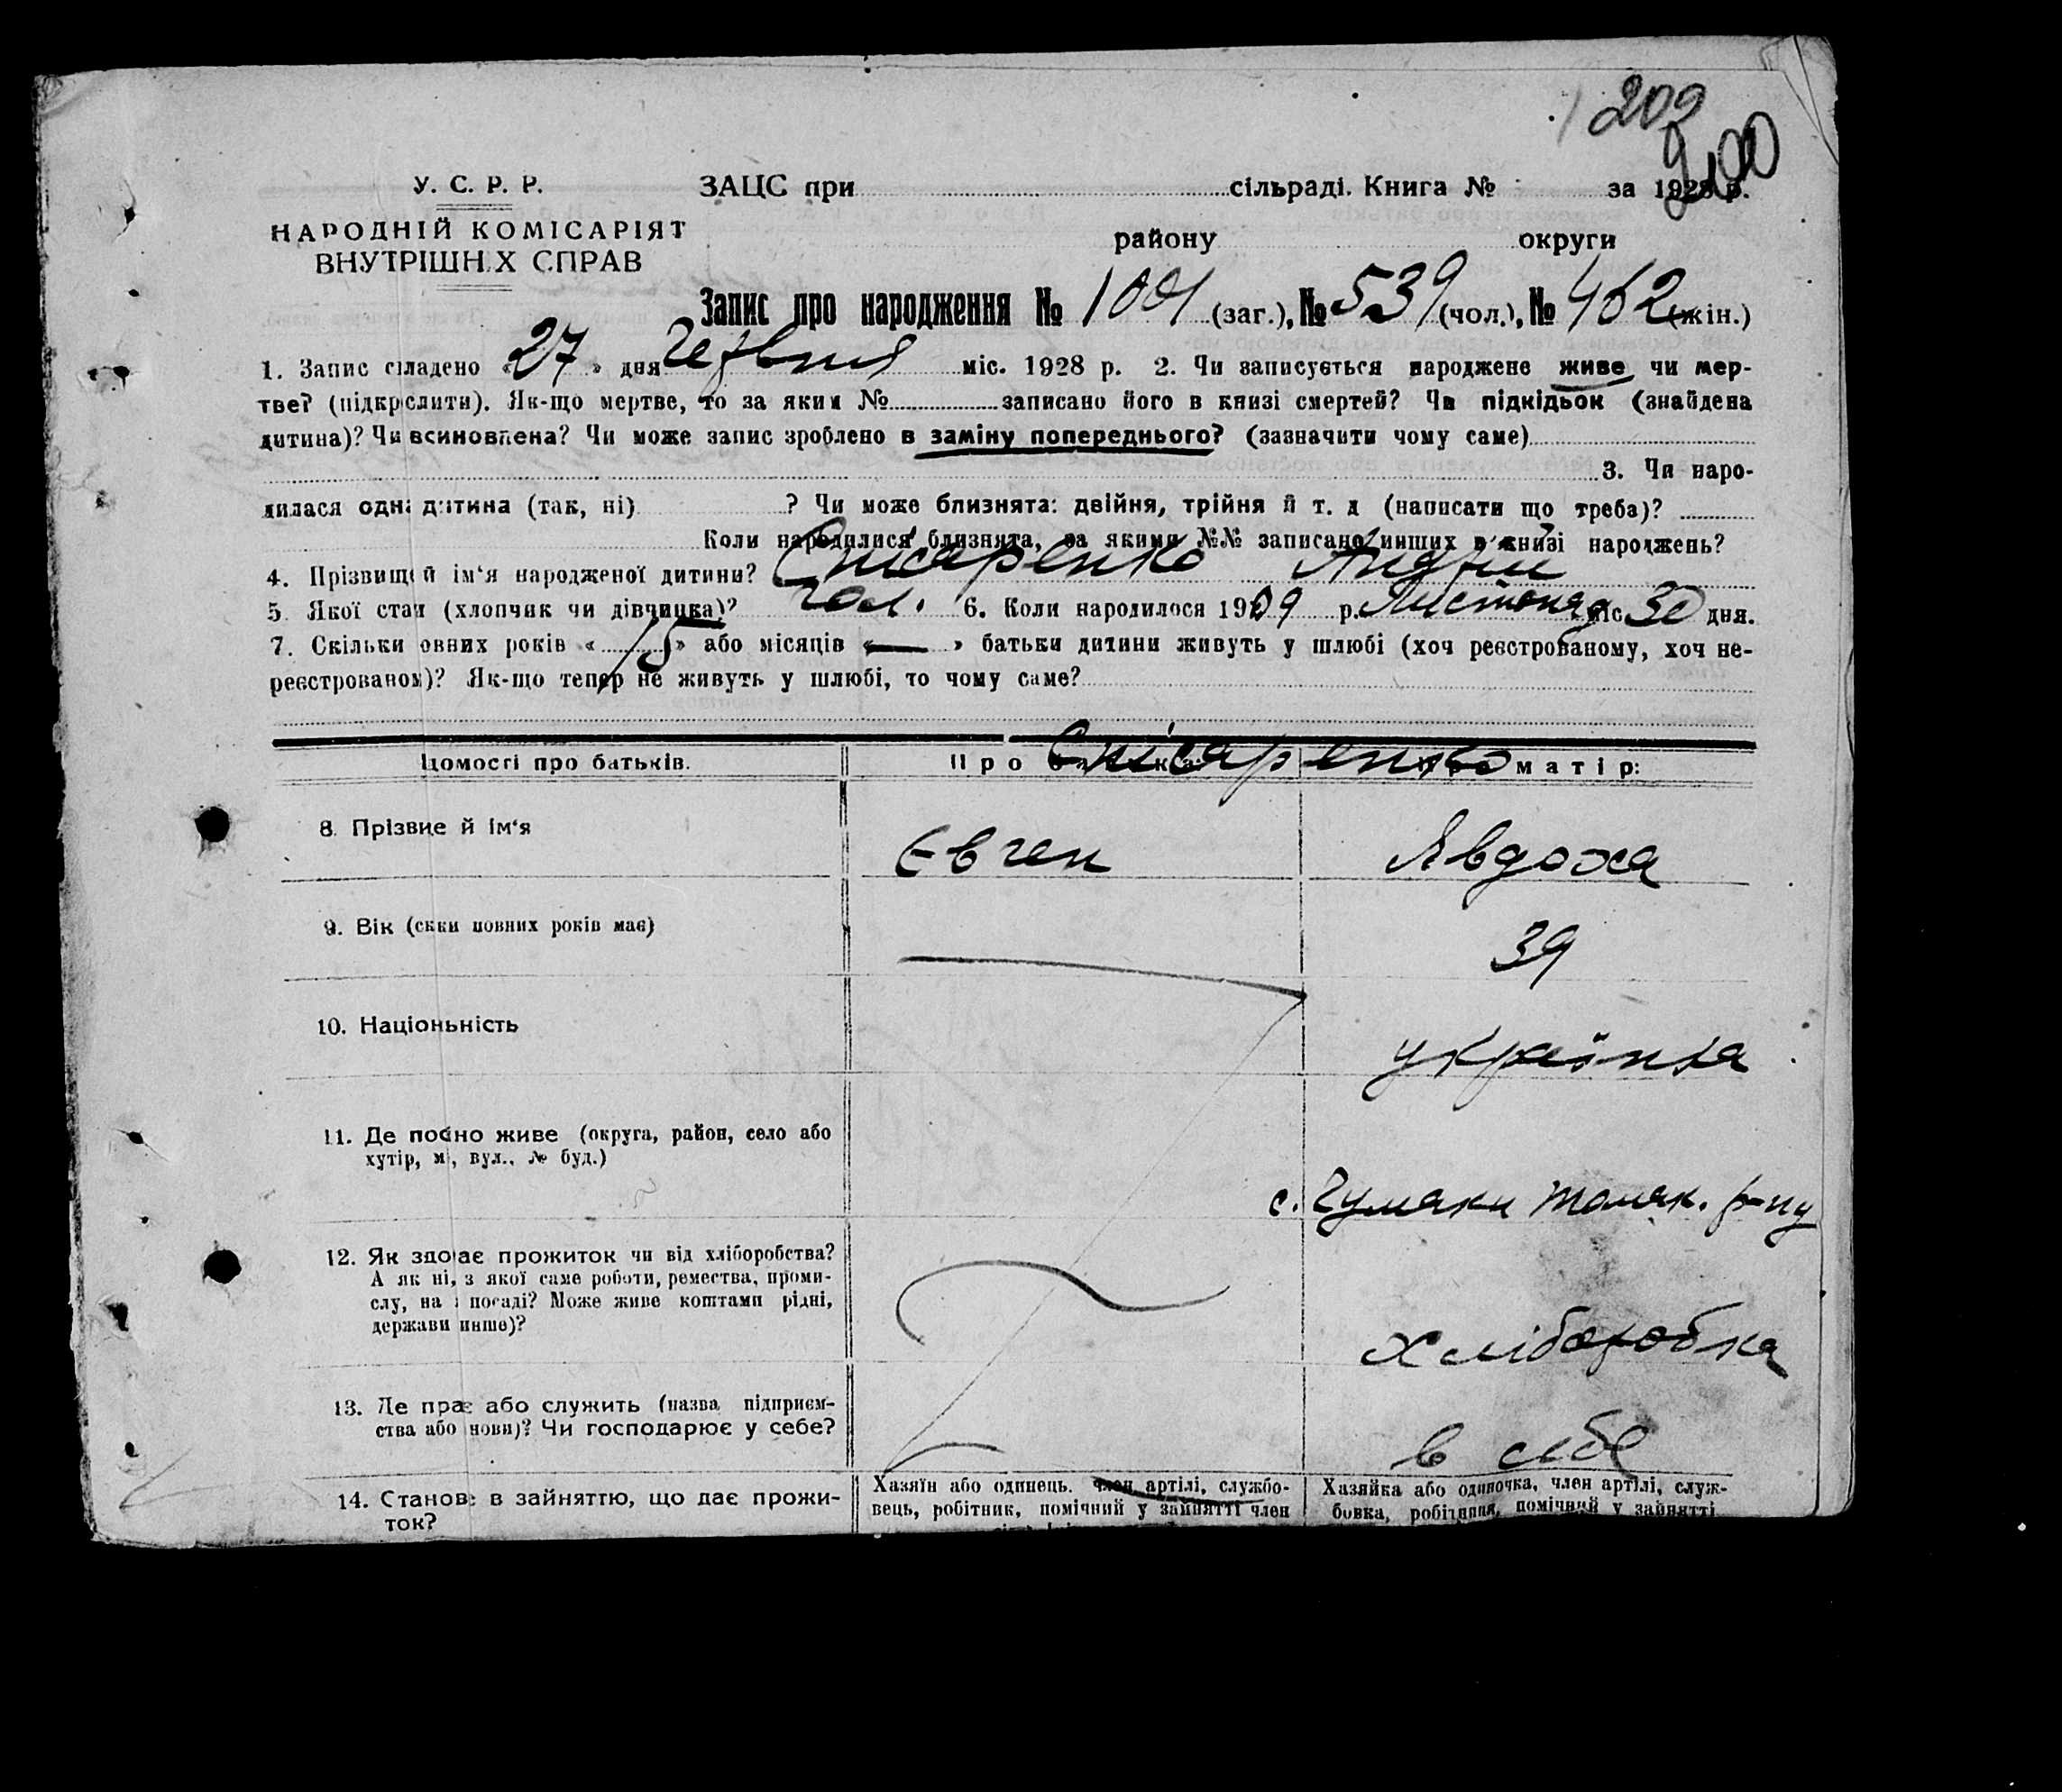 209
200
У. С. Р. Р.
НАРОДНІЙ КОМІСАРІЯТ
ВНУТРІШН Х СПРАВ
ЗАЦС при сільраді. Книга № за 1928 р.
району округи
Запис про народження № (заг.), № 539 (чол.), № 462 (жін.)
1. Запис складено « 27 » дня Червня міс. 1928 р. 2. Чи записується народжене живе чи мер-
тве? (підкреслити). Як-що мертве, то за яким № записано його в книзі смертей? Чи підкідьок (знайдена
дитина)? Чи всиновлена? Чи може запис зроблено в заміну попереднього? (зазначити чому саме)
3. Чи наро-
дилася одна дитина (так, ні) ? Чи може близнята: двійня, трійня й т. д (написати що треба)?
Коли народилися близнята, за якими №№ записано инших в книзі народжень?
4. Прізвищ й ім‘я народженої дитини? Снісаренко Андрій
5 Якої стати (хлопчик чи дівчинка)? чол. 6. Коли народилося 1909 р. Листопад міс 30 дня.
7. Скільки овних років « 15 » або місяців « — » батьки дитини живуть у шлюбі (хоч реєстрованому, хоч не-
реєстрованом)? Як-що тепер не живуть у шлюбі, то чому саме?
домості про батьків. Про матір:
Снісаренко
8. Прізвище й ім‘я Євген Явдоха
9. Вік (скки повних років має) 39
10. Націоньність українка
11. Де поено живе (округа, район, село або
хутір, м , вул., № буд.)
с. Чумаки томак. р-ну
12. Як здоає прожиток чи від хліборобства?
А як ні, з якої саме роботи, ремества, проми-
слу, на посаді? Може живе коштами рідні,
держави инше)?
хліборобка
13. Де прає або служить (назва підприєм-
ства або нови)? Чи господарює у себе?
в себе
14. Станов: в зайняттю, що дає прожи-
ток?
Хазяїн або одинець. член артілі, службо-
вець, робітник, помічний у зайнятті член
Хазяйка або одиночка, член артілі, служ-
бовка, робітниця, помічний у зайнятті